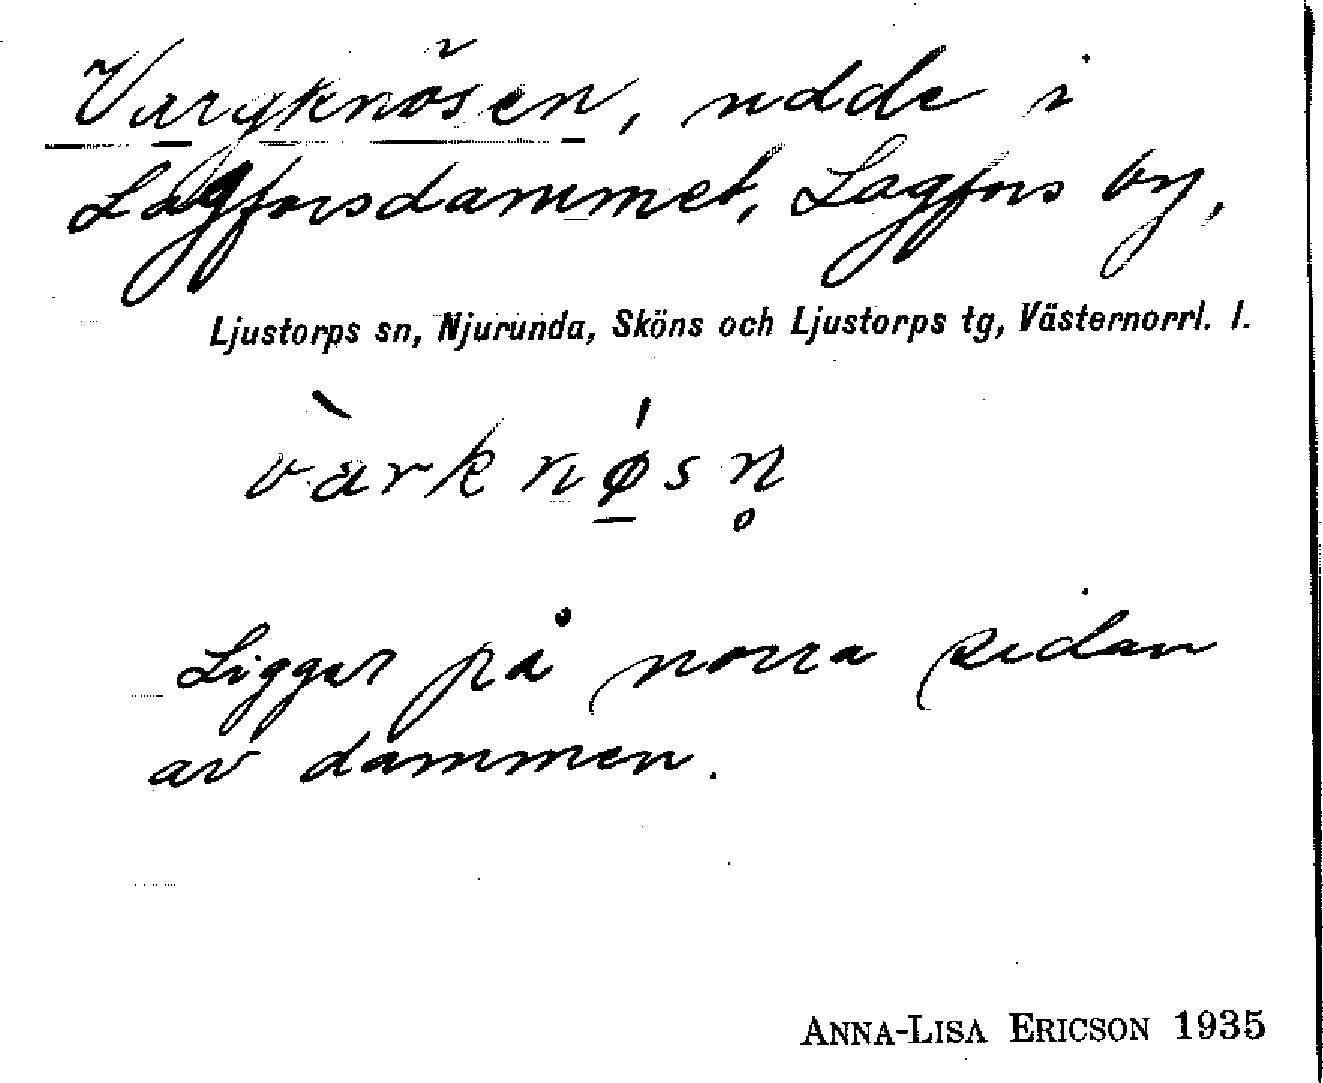 Vargknösen, udde i
Lagforsdammet, Lagfors by,
Ljustorps sn, Njurunda, Sköns och Ljustorps tg, Västernorrl. l.
vàrknǿ̠sn̥
Ligger på norra sidan
av dammen.
ANNA-LISA ERICSON 1935